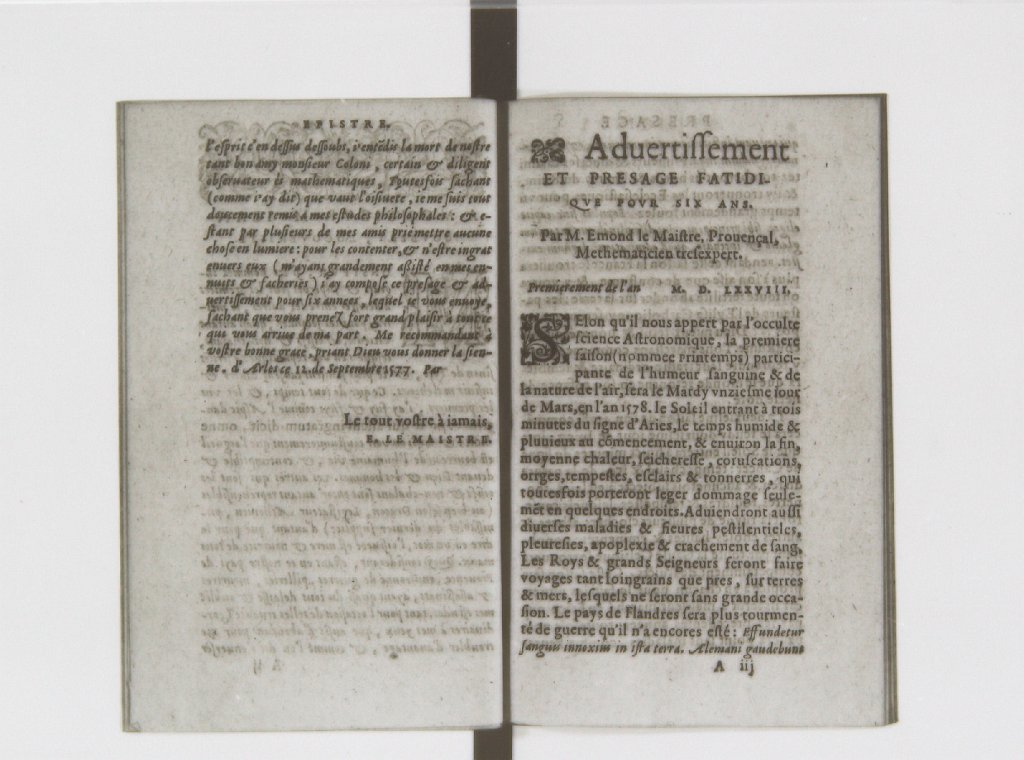 EPISTRE.
l'esprit c'en dessus dessoubs, i'entédis la mort de nostre
tant bon amy monsieur Coloni, certain & diligent
obseruateur és mathematiques, Toutesfois sachant
(comme i'ay dit) que vaut l'oisiueté, ie me suis tout
doucement remis à mes estudes philosophales: & e-
stant par plusieurs de mes amis prié mettre aucune
chose en lumiere: pour les contenter, & n'estre ingrat
enuers eux (m'ayans grandement aßisté en mes en-
nuits & facheries) i'ay composé ce presage & ad-
uertissement pour six annees, lequel ie vous enuoye,
sachant que vous prenez fort grand plaisir à tout ce
que vous arriue de ma part. Me recommandant à
vostre bonne grace, priant Dieu vous donner la sien-
ne. d'Arles ce 12. de Septembre 1577. Par
Le tout vostre à iamais,
E. LE MAISTRE.
Aduertissement
ET PRESAGE FATIDI-
QVE POVR SIX ANS.
Par M. Emond le Maistre, Prouençal,
Methematicien tresexpert.
Premierement de l'an M. D. LXXVIII.
SElon qu'il nous appert par l'occulte
science Astronomique, la premiere
saison (nommee Printemps) partici-
pante de l'humeur sanguine & de
la nature de l'air, sera le Mardy vnziesme iour
de Mars, en l'an 1578. le Soleil entrant à trois
minutes du signe d'Aries, le temps humide &
pluuieux au cõmencement, & enuiron la fin,
moyenne chaleur, seicheresse, coruscations,
orrges, tempestes, esclairs & tonnerres, qui
toutesfois porteront leger dommage seule-
mẽt en quelques endroits. Aduiendront aussi
diuerses maladies & fieures pestilentieles,
pleuresies, apoplexie & crachement de sang.
Les Roys & grands Seigneurs feront faire
voyages tant loingrains que pres, sur terres
& mers, lesquels ne seront sans grande occa-
sion. Le pays de Flandres sera plus tourmen-
té de guerre qu'il n'a encores esté: Effundetur
sanguis innoxius in ista terra. Alemani gaudebunt
A iij